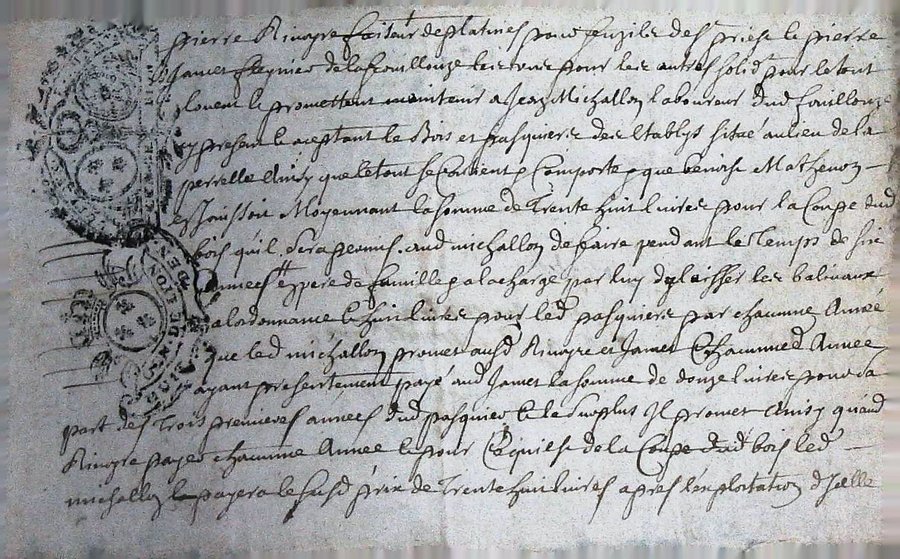 pierre Rivoyre faiteur de platines pour
Jamet les uns pour les autres solid.t pour le tout
louent et promettent maintenir a Jean Michallon laboureur dud
cy present et aceptant le Bois et pasquier des Etablys situé au lieu de la
perrelle Ainsy que le tout se Contient et Comporte et que benoist Mathevon
en Jouissoit Moyennant la somme de Trente huit livres pour la Coupe dud
bois quil sera permis aud michallon de faire pendant le Temps de six
années pere de famille a la charge par luy dy laisser les baliveaux
a lordonnance et huit livres pour led pasquier par chacune Année
que led michallon promet ausd Rivoyre et Jamet chacune Année
ayant presentement payé aud Jamet la somme de douze livres pour sa
part des Trois premieres années dud pasquier et le surplus Il promet Ainsy quaud
Rivoyre payer chacune Année et pour de la Coupe dud bois led
michallon payera le susd prix de Trente huit livres apres lexploitation dJcelle